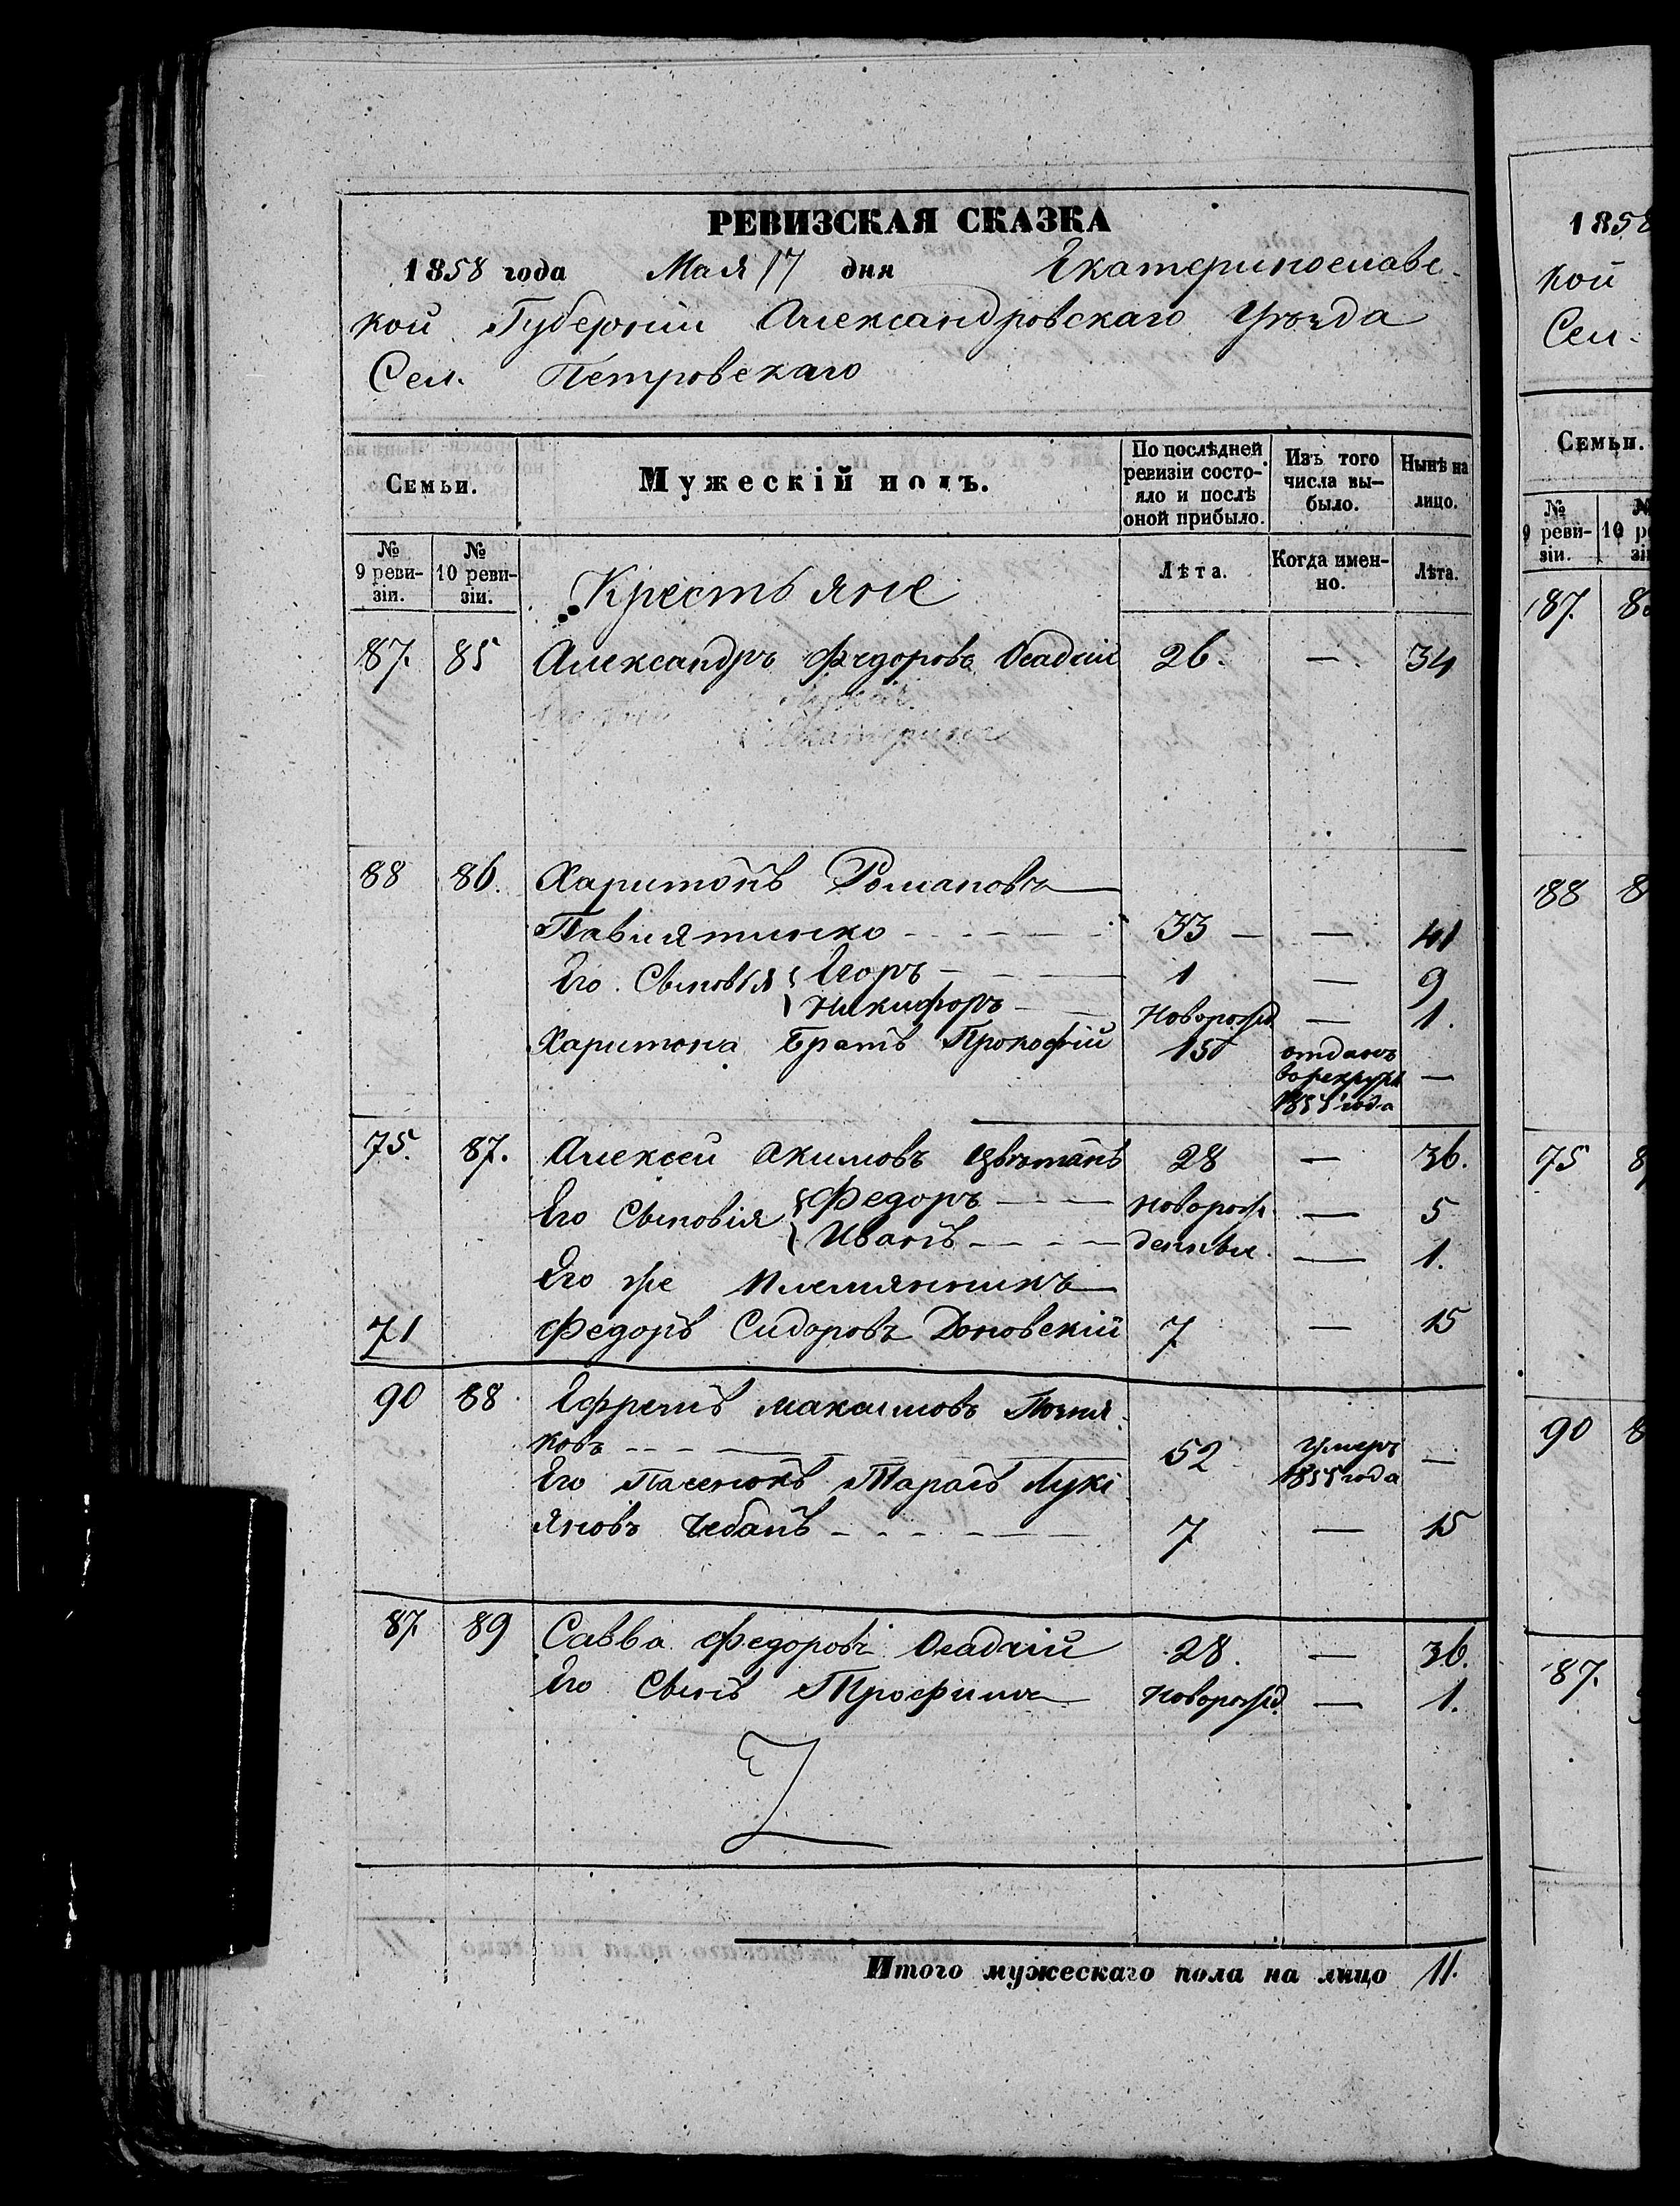 РЕВИЗСКАЯ СКАЗКА
1858 года Мая 17 дня Екатеринославс-
кой Губерніи Александровскаго Уѣзда
Сел. Петровскаго
Семьи.
Мужескій полъ.
По послѣдней ревизіи состо-
яло и послѣ
оной прибыло.
Изъ того
числа вы-
было.
Нынѣ на
лицо.
№
9 реви-
зіи.
№
10 реви-
зіи.
Крестьяне
Лѣта.
Когда имен-
но.
Лѣта.
87. 85 Александръ Федоровъ Осадчій 26. — 34
88 86. Харитонъ Романовъ
Павлятинко 33 — 41
Его Сыновья Егоръ 1 — 9
Никифоръ Новорожд — 1.
Харитона Братъ Прокофій 15 отданъ
в рекруты —
1855 года
75. 87. Алексей Акимовъ Цвѣтанъ 28 — 36.
Его Сыновія Федоръ новорож — 5
Иванъ денные. — 1.
Его же племянникъ
71 Федоръ Сидоровъ Доновскій 7 — 15
90 88 Ефремъ Максимовъ Позня-
ковъ 52 Умеръ —
1855 года
Его Пасенокъ Тарасъ Лукі
яновъ Чебанъ 7 — 15
87. 89 Савва Федоровъ Осадчій 28. — 36.
Его Сынъ Трофимъ Новорожд. — 1.
Итого мужескаго пола на лицо 11.
1858
кой
Сел.
Семьи.
№
9 реви-
зіи.
10 ре
87.
88
75
90
87.